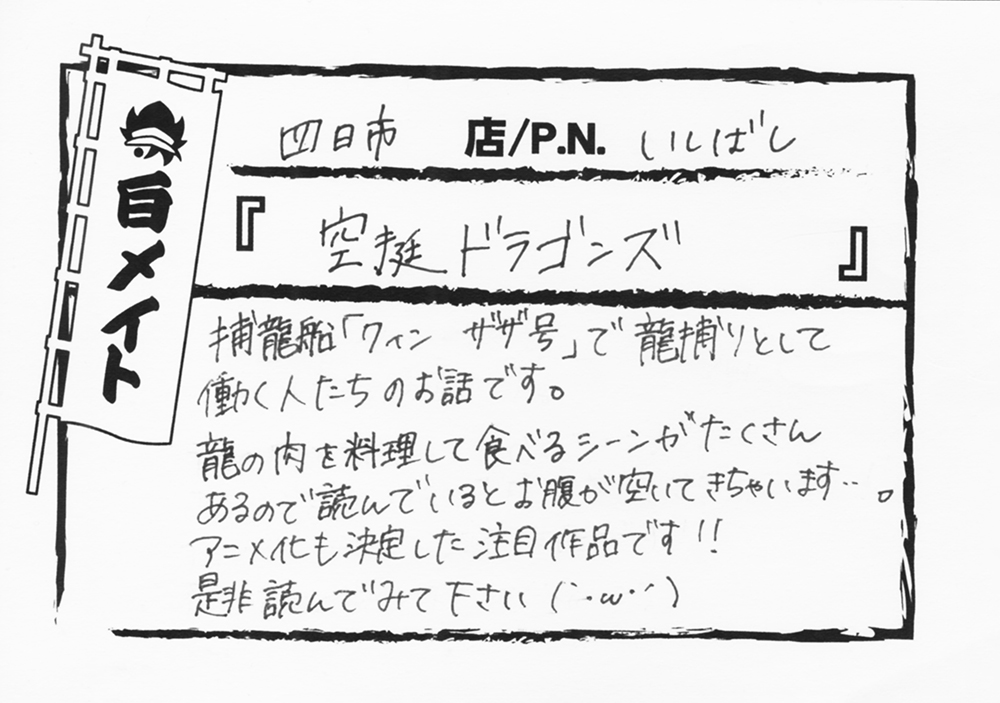 四日市 店/P.N. いしばし
『空挺ドラゴンズ』
捕龍船「クィン ザザ号」で龍捕りとして
働く人たちのお話です。
龍の肉を料理して食べるシーンがたくさん
あるので読んでいるとお腹が空いてきちゃいます…。
アニメ化も決定した注目作品です!!
是非読んでみて下さい(´･ω･`)
メイト